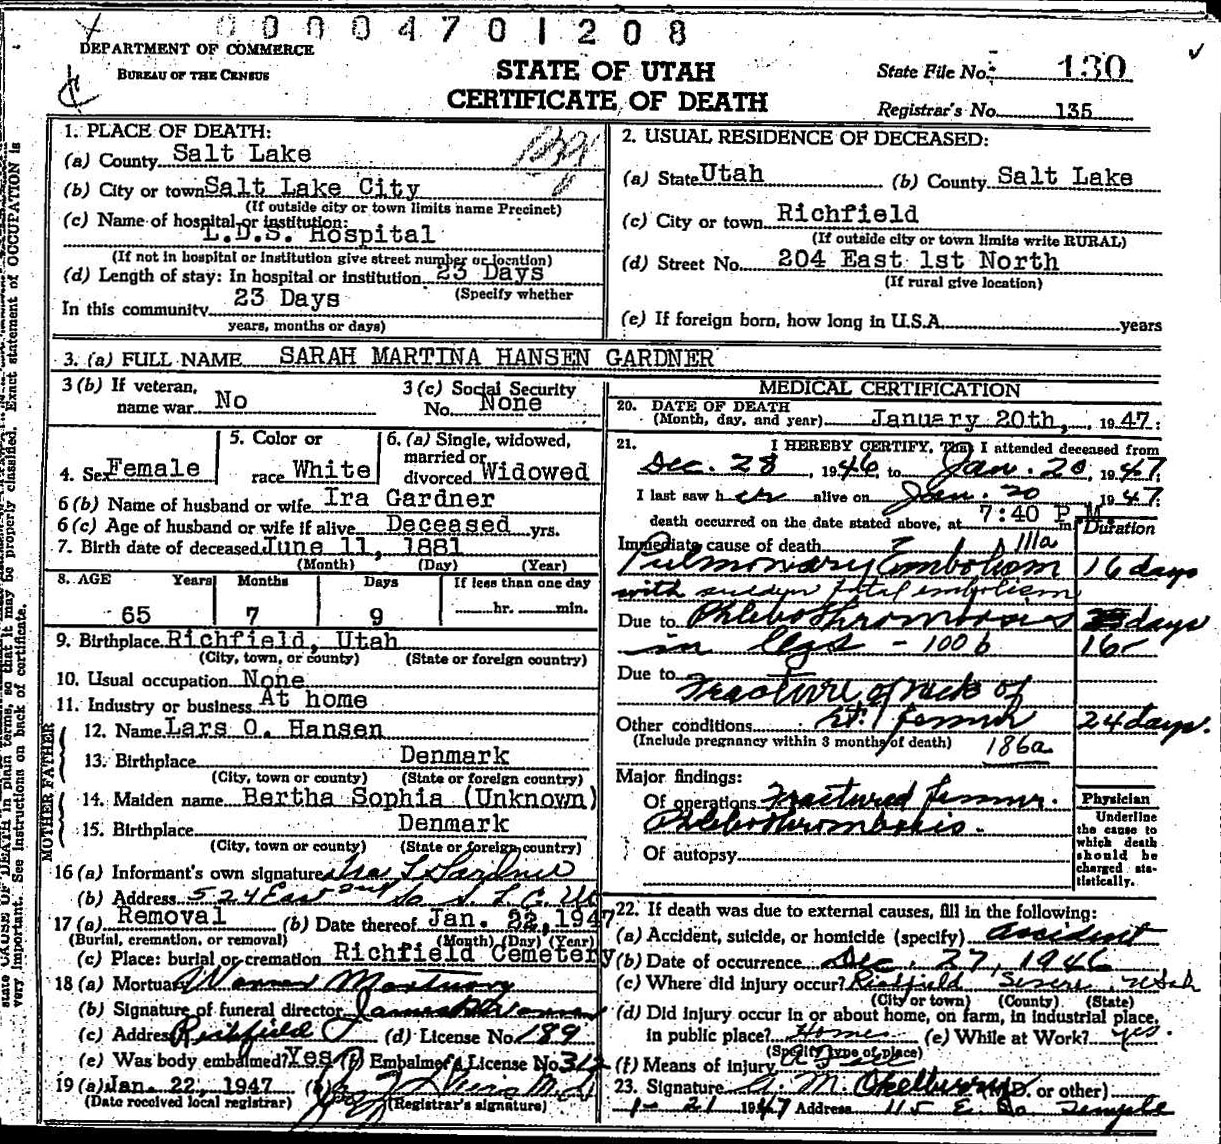 00004701208
DEPARTMENT OF COMMERCE
BUREAU OF THE CENSUS
STATE OF UTAH
CERTIFICATE OF DEATH
State File No. 130
Registrar's No. 135
1. PLACE OF DEATH:
(a) County Salt Lake
(b) City or town Salt Lake City
(If outside city or town limits name Precinct)
(c) Name of hospital or institution:
L.D.S. Hospital
(If not in hospital or institution give street number or location)
(d) Length of stay: In hospital or institution 23 Days
(Specify whether
In this community 23 Days
years, months or days)
2. USUAL RESIDENCE OF DECEASED:
(a) State Utah (b) County Salt Lake
(c) City or town Richfield
(If outside city or town limits write RURAL)
(d) Street No. 204 East 1st North
(If rural give location)
(e) If foreign born, how long in U.S.A. years
3. (a) FULL NAME SARAH MARTINA HANSEN GARDNER
3 (b) If veteran, name war No
3 (c) Social Security No. None
4. Sex Female
5. Color or race White
6. (a) Single, widowed, married or divorced Widowed
6 (b) Name of husband or wife Ira Gardner
6 (c) Age of husband or wife if alive Deceased yrs.
7. Birth date of deceased June 11, 1881
(Month) (Day) (Year)
8. AGE Years Months Days If less than one day
65 7 9 hr. min.
9. Birthplace Richfield, Utah
(City, town, or county) (State or foreign country)
10. Usual occupation None
11. Industry or business At home
FATHER
12. Name Lars O. Hansen
13. Birthplace Denmark
(City, town or county) (State or foreign country)
MOTHER
14. Maiden name Bertha Sophia (Unknown)
15. Birthplace Denmark
(City, town or county) (State or foreign country)
16 (a) Informant's own signature Ira L Gardner
(b) Address 524 East 2nd So S. L. C. Ut
17 (a) Removal (b) Date thereof Jan. 22, 1947
(Burial, cremation, or removal) (Month) (Day) (Year)
(c) Place: burial or cremation Richfield Cemetery
18 (a) Mortuary Mortuary
(b) Signature of funeral director
(c) Address Richfield (d) License No. 189
(e) Was body embalmed? Yes (f) Embalmer's License No. 312
19 (a) Jan. 22, 1947 (b) M.D.
(Date received local registrar) (Registrar's signature)
MEDICAL CERTIFICATION
20. DATE OF DEATH
(Month, day, and year) January 20th, 1947
21. I HEREBY CERTIFY, That I attended deceased from
Dec. 28, 1946 to Jan. 20, 1947
I last saw her alive on Jan. 20 1947
death occurred on the date stated above, at 7:40 P M m.
Duration
Immediate cause of death 111a
Pulmonary Embolism 16 days
with sudden fatal embolism
Due to Phlebothrombosis days
in legs - 100b 16
Due to
Fracture of neck of
Other conditions rt. femur 24 days.
(Include pregnancy within 3 months of death) 186a
Major findings:
Of operations Fractured femur.
Phlebothrombosis.
Of autopsy
Physician
Underline the cause to which death should be charged statistically.
22. If death was due to external causes, fill in the following:
(a) Accident, suicide, or homicide (specify) Accident
(b) Date of occurrence Dec. 27, 1946
(c) Where did injury occur? Richfield Sevier Utah
(City or town) (County) (State)
(d) Did injury occur in or about home, on farm, in industrial place,
in public place? Home (e) While at Work? yes.
(Specify type of place)
(f) Means of injury
23. Signature A. M. Okelberry (M.D. or other)
1-21 1947 Address 115 E. So Temple
state CAUSE OF DEATH in plain terms, so that it may be properly classified. Exact statement of OCCUPATION is
very important. See instructions on back of certificate.